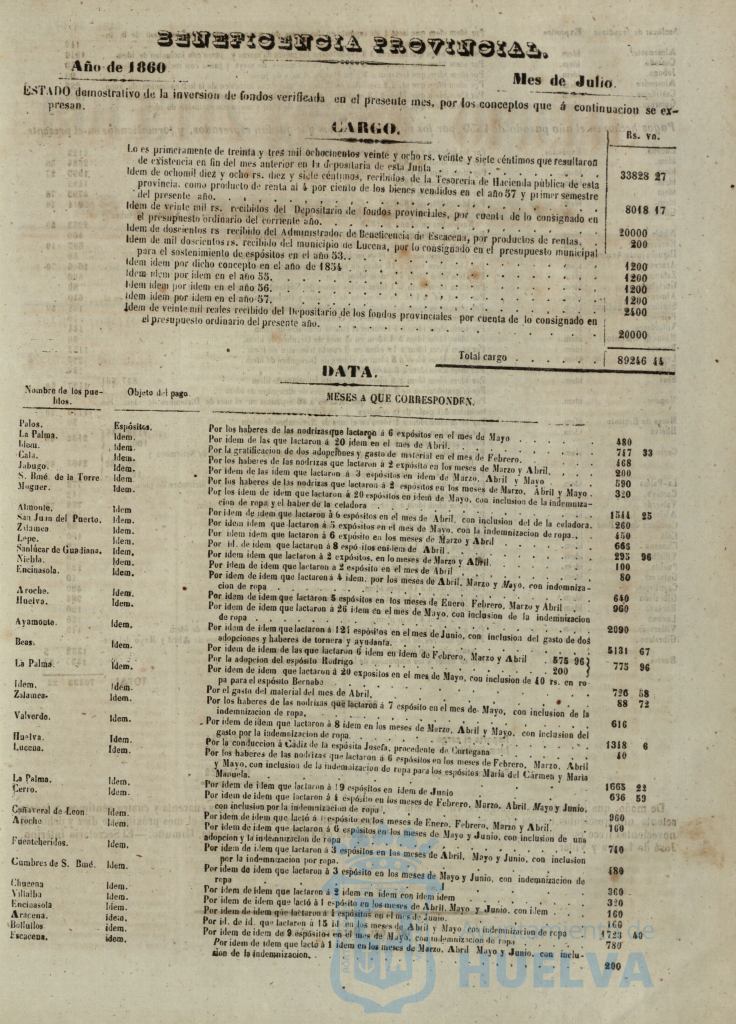 BENEFICENCIA PROVINCIAL.
Año de 1860
Mes de Julio.
ESTADO demostrativo de la inversion de fondos verificada en el presente mes, por los conceptos que á continuacion se ex-
presan.
CARGO.
Rs. vn.
Lo es primeramente de treinta y tres mil ochocientos veinte y ocho rs. veinte y siete céntimos que resultaron
de existencia en fin del mes anterior en la depositaria de esta Junta . . 33828 27
Idem de ochomil diez y ocho rs. diez y siete céntimos, recibidos de la Tesoreria de Hacienda pública de esta
provincia, como producto de renta al 4 por ciento de los bienes vendidos en el año 57 y primer semestre
del presente año. . . 8018 17
Idem de veinte mil rs. recibidos del Depositario de fondos provinciales, por cuenta de lo consignado en
el presupuesto ordinario del corriente año. . . 20000
Idem de doscientos rs recibido del Administrador de Beneficencia de Escacena, por productos de rentas. . 200
Idem de mil doscientos rs. recibido del municipio de Lucena, por lo consignado en el presupuesto municipal
para el sostenimiento de espósitos en el año 53. . . 1200
Idem idem por dicho concepto en el año de 1854 . . 1200
Idem idem por idem en el año 55. . . 1200
Idem idem por idem en el año 56. . . 1200
Idem idem por idem en el año 57. . . 2400
Idem de veinte mil reales recibido del Depositario de los fondos provinciales por cuenta de lo consignado en
el presupuesto ordinario del presente año. . . 20000
Total cargo . . . . . 89246 44
DATA.
Nombre de los pue-
blos.
Objeto del pago.
MESES A QUE CORRESPONDEN.
Palos. Espósitos. Por los haberes de las nodrizas que lactaron á 6 expósitos en el mes de Mayo . . 480
La Palma. Idem. Por idem de las que lactaron á 20 idem en el mes de Abril. . . 747 33
Idem. Idem. Por la gratificacion de dos adopciones y gasto de material en el mes de Febrero. . 468
Cala. Idem. Por los haberes de las nodrizas que lactaron á 2 expósito en los meses de Marzo y Abril. . 200
Jabugo. Idem. Por idem de las idem que lactaron á 3 espósitos en idem de Marzo, Abril y Mayo . 590
S. Bmé. de la Torre Idem. Por los haberes de las nodrizas que lactaron á 2 espósitos en los meses de Marzo, Abril y Mayo . 320
Moguer. Idem. Por los idem de idem que lactaron á 20 espósitos en idem de Mayo, con inclusion de la indemniza-
cion de ropa y el haber de la celadora . . 1544 25
Almonte. Idem Por idem idem que lactaron á 6 espósitos en el mes de Abril, con inclusion del de la celadora. 260
San Juan del Puerto. Idem. Por idem idem que lactaron á 5 espósitos en el mes de Mayo, con la indemnizacion de ropa. . 450
Zalamea Idem. Por idem idem que lactaron á 6 espósito en los meses de Marzo y Abril . . 666
Lepe. Idem. Por id. de idem que lactaron á 8 espósitos en idem de Abril. . 295 96
Sanlúcar de Guadiana. Idem. Por idem idem que lactaron á 2 espósitos, en los meses de Marzo y Abril. . 100
Niebla. Idem. Por idem idem que lactaron á 2 espósito en el mes de Abril . . 80
Encinasola. Idem. Por idem de idem que lactaron á 4 idem, por los meses de Abril, Marzo y Mayo, con indemniza-
cion de ropa . . 640
Aroche. Idem. Por idem de idem que lactaron 5 espósitos en los meses de Enero Febrero, Marzo y Abril . . 960
Huelva. Idem. Por idem de idem que lactaron á 26 idem en el mes de Mayo, con inclusion de la indemnizacion
de ropa . . 2090
Ayamonte. Idem. Por idem de idem que lactaron á 124 espósitos en el mes de Junio, con inclusion del gasto de dos
adopciones y haberes de tornera y ayudanta. . . 5131 67
Beas. Idem. Por idem de idem de las que lactaron 6 idem en idem de Febrero, Marzo y Abril . 575 96}
Por la adopcion del espósito Rodrigo . . 200 } 775 96
La Palma. Idem. Por idem de idem que lactaron á 20 expositos en el mes de Mayo, con inclusion de 40 rs. en ro-
pa para el espósito Bernabé . . 726 58
Idem. Idem. Por el gasto del material del mes de Abril. . . 88 72
Zalamea. Idem. Por los haberes de las nodrizas que lactaron á 7 espósito en el mes de Mayo, con inclusion de la
indemnizacion de ropa. . . 616
Valverde. Idem. Por idem de idem que lactaron á 8 idem en los meses de Marzo, Abril y Mayo, con inclusion del
gasto por la indemnizacion de ropa. . . 1318 6
Huelva. Idem. Por la conduccion á Cádiz de la espósita Josefa, procedente de Cortegana . . 40
Lucena. Idem. Por los haberes de las nodrizas que lactaron á 6 espósitos en los meses de Febrero, Marzo, Abril
y Mayo, con inclusion de la indemnizacion de ropa para los espósitos Maria del Cármen y Maria
Manuela. . . 1665 22
La Palma. Idem. Por idem de idem que lactaron á 19 espósitos en idem de Junio . . 636 59
Cerro. Idem. Por idem de idem que lactaron á 4 espósitos en los meses de Febrero, Marzo, Abril, Mayo y Junio,
con inclusion por la indemnizacion de ropa . . 960
Cañaveral de Leon. Idem. Por idem de idem que lactó á espósito en los meses de Enero, Febrero, Marzo y Abril. . 160
Aroche Idem. Por idem de idem que lactaron á 6 espósitos en los meses de Mayo y Junio, con inclusion de una
adopcion y la indemnizacion de ropa . . 740
Fuenteheridos. Idem. Por idem de idem que lactaron á 3 espósitos en los meses de Abril, Mayo y Junio, con inclusion
por la indemnizacion por ropa. . . 480
Cumbres de S. Bmé. Idem. Por idem de idem que lactaron á 3 espósito en los meses de Mayo y Junio, con indemnizacion de
ropa . . 360
Chucena Idem. Por idem de idem que lactaron á 2 idem en idem con idem idem . . 320
Villalba Idem. Por idem de idem que lactó á 1 espósito en los meses de Abril, Mayo y Junio, con idem . . 160
Encinasola Idem. Por idem de idem que lactaron á espósitos en el mes de Junio. . 160
Aracena. Idem. Por id. de id. que lactaron á 15 id en los meses de Abril y Mayo con indemnizacion de ropa 1723 40
Bollullos Idem. Por idem de idem de 9 espósitos en el mes de Mayo, con indemnizacion de ropa . . 780
Escacena. idem. Por idem de idem que lactó á 1 idem en los meses de Marzo, Abril Mayo y Junio, con inclu-
sion de la indemnizacion. . . 200
HUELVA